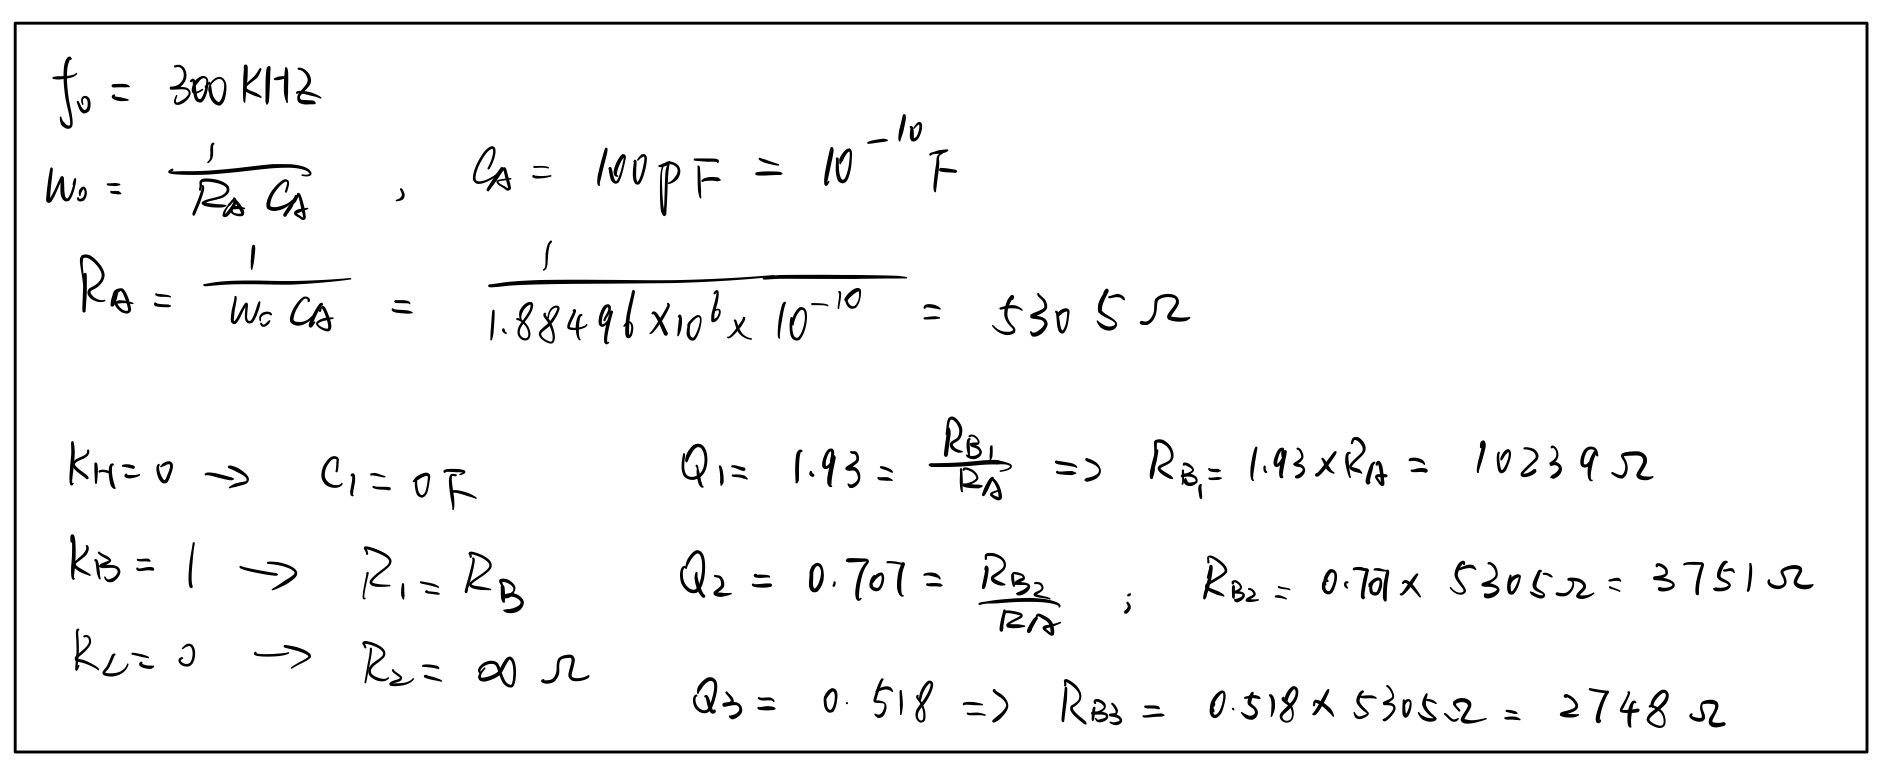 f₀ = 300 KHZ
W₀ = 1 / (R_A C_A) , C_A = 100 pF = 10⁻¹⁰ F
R_A = 1 / (W₀ C_A) = 1 / (1.88496 × 10⁶ × 10⁻¹⁰) = 5305 Ω
K_H = 0 → C₁ = 0 F
K_B = 1 → R₁ = R_B
K_L = 0 → R₂ = ∞ Ω
Q₁ = 1.93 = R_B₁ / R_A => R_B₁ = 1.93 × R_A = 10239 Ω
Q₂ = 0.707 = R_B₂ / R_A ; R_B₂ = 0.707 × 5305 Ω = 3751 Ω
Q₃ = 0.518 => R_B₃ = 0.518 × 5305 Ω = 2748 Ω